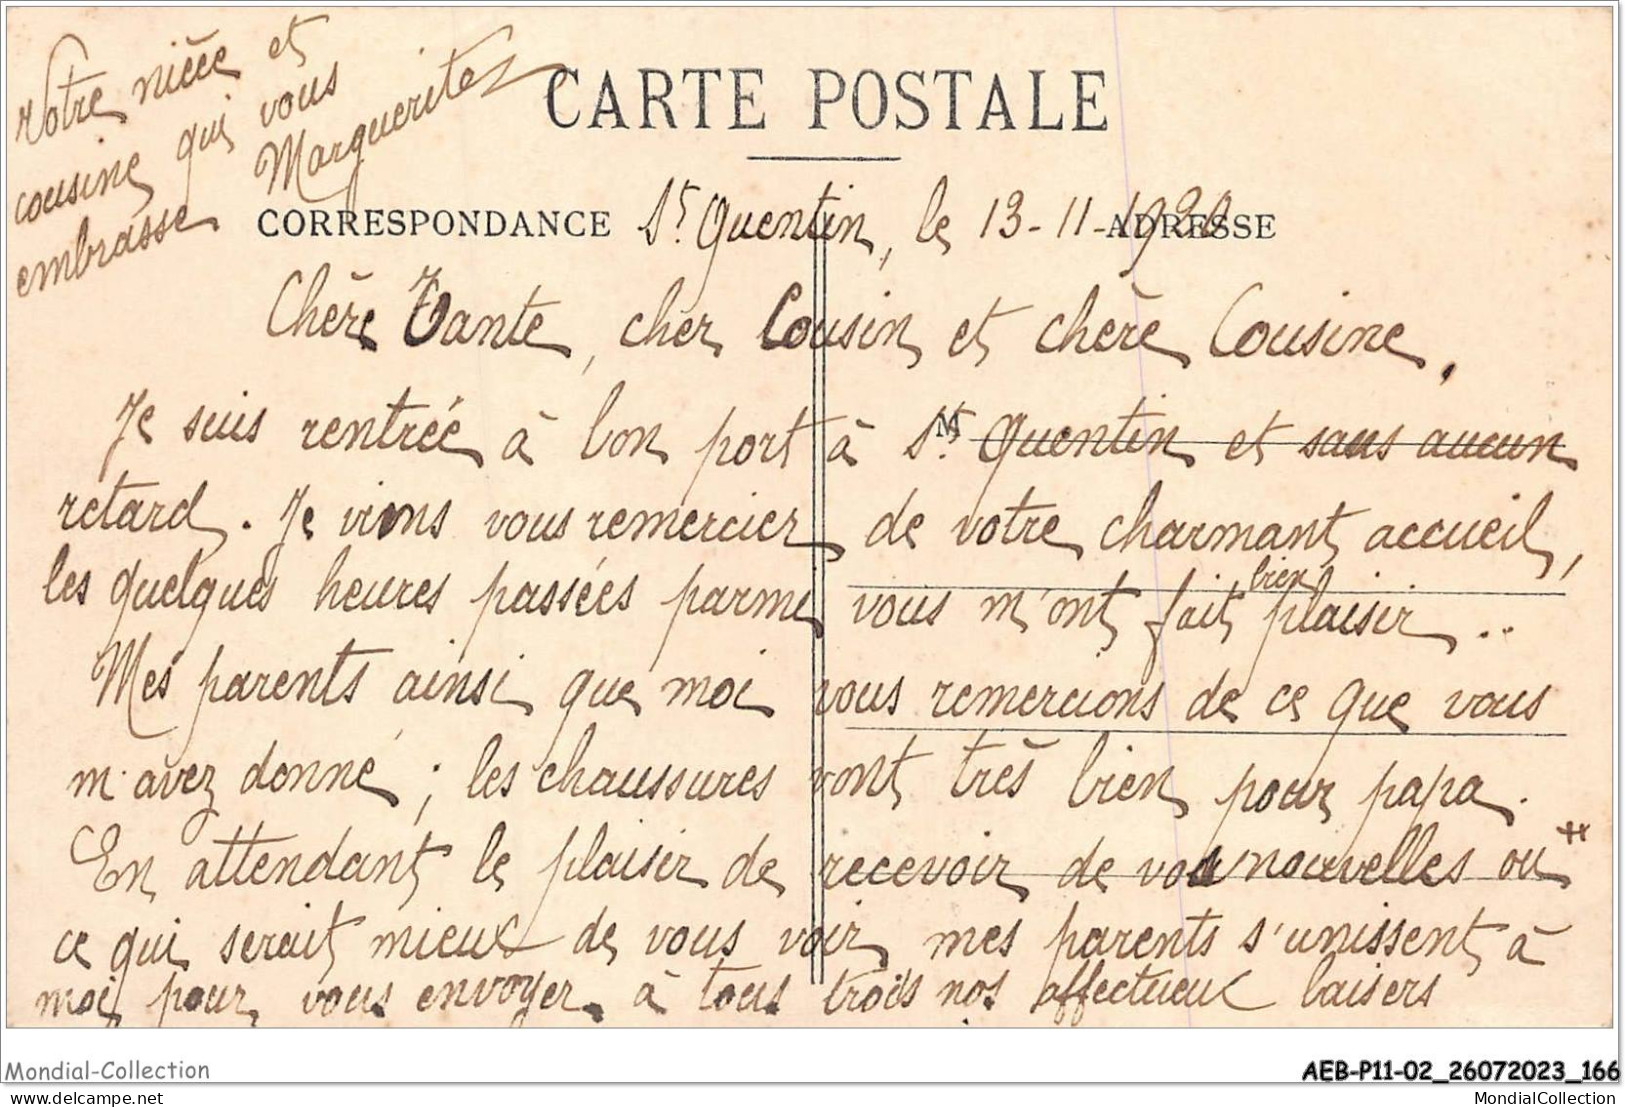 Votre nièce et
cousine qui vous
embrasse Marguerite
CARTE POSTALE
CORRESPONDANCE
ADRESSE
St Quentin, le 13-11-
Chère Tante, cher Cousin et chère Cousine,
M
Je suis rentrée à bon port à St Quentin et sans aucun
retard. Je viens vous remercier de votre charmant accueil,
les quelques heures passées parmi vous m'ont fait bien plaisir..
Mes parents ainsi que moi vous remercions de ce que vous
m'avez donné ; les chaussures vont très bien pour papa.
En attendant le plaisir de recevoir de vos nouvelles ou
ce qui serait mieux de vous voir, mes parents s'unissent à
moi pour vous envoyer à tous trois nos affectueux baisers
Mondial-Collection
AEB-P11-02_26072023_166
delcampe.net
MondialCollection